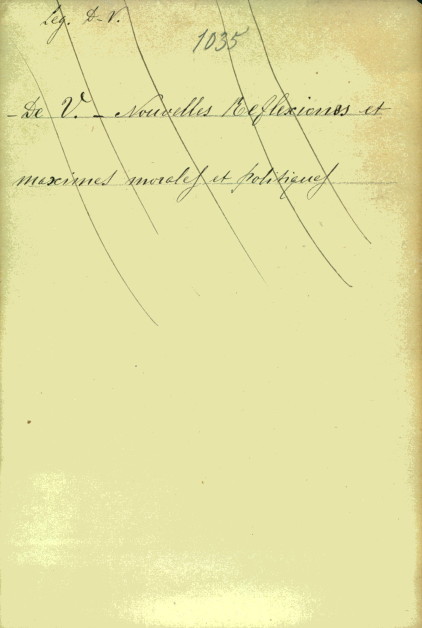 Leg. D-V.
1035
- De V. - Nouvelles Reflexions et
maximes morales et politiques